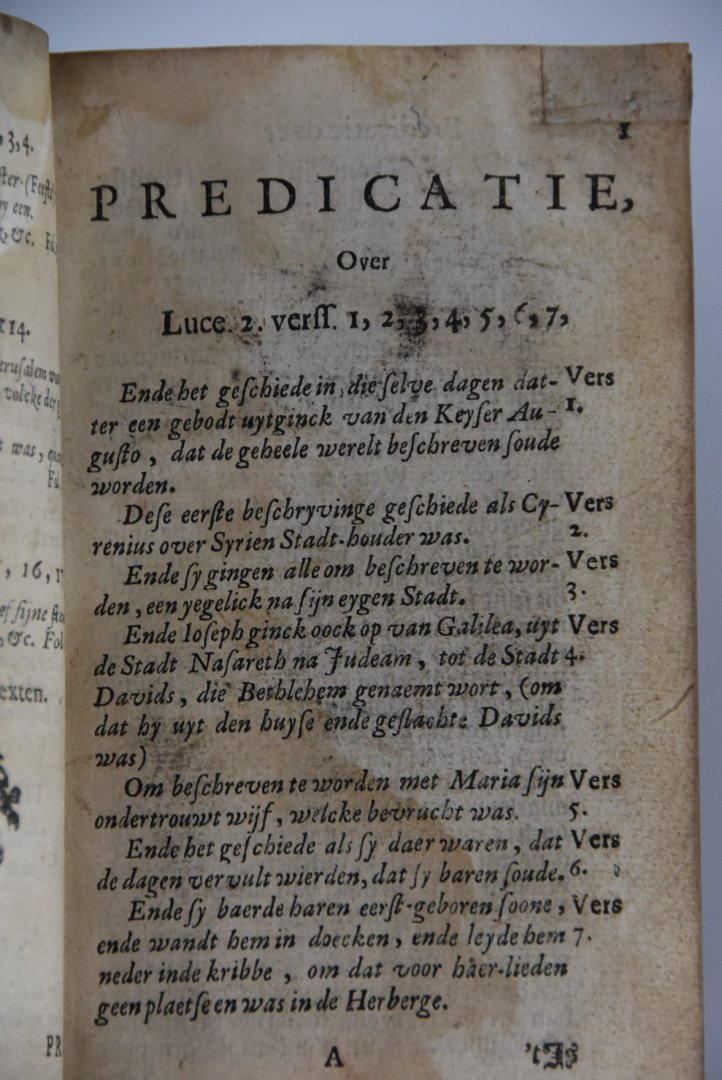 3,4.
y een.
&c. Fol
14.
erusalem
volcke der
was,
Fol
, 16, 1
&c. Fol
exten.
PR
1
PREDICATIE,
Over
Luce. 2. verſſ. 1, 2, 3, 4, 5, 6, 7,
Ende het geſchiede in die ſelve dagen dat- Vers
ter een gebodt uytginck van den Keyſer Au- 1.
guſto, dat de geheele werelt beſchreven ſoude
worden.
Deſe eerſte beſchryvinge geſchiede als Cy- Vers
renius over Syrien Stadt-houder was. 2.
Ende ſy gingen alle om beſchreven te wor- Vers
den, een yegelick na ſijn eygen Stadt. 3.
Ende Ioſeph ginck oock op van Galilea, uyt Vers
de Stadt Naſareth na Judeam, tot de Stadt 4.
Davids, die Bethlehem genaemt wort, (om
dat hy uyt den huyſe ende geſlachte Davids
was)
Om beſchreven te worden met Maria ſijn Vers
ondertrouwt wijf, welcke bevrucht was. 5.
Ende het geſchiede als ſy daer waren, dat Vers
de dagen vervult wierden, dat ſy baren ſoude. 6.
Ende ſy baerde haren eerſt-geboren ſoone, Vers
ende wandt hem in doecken, ende leyde hem 7.
neder inde kribbe, om dat voor haer-lieden
geen plaetſe en was in de Herberge.
A 'tIſ